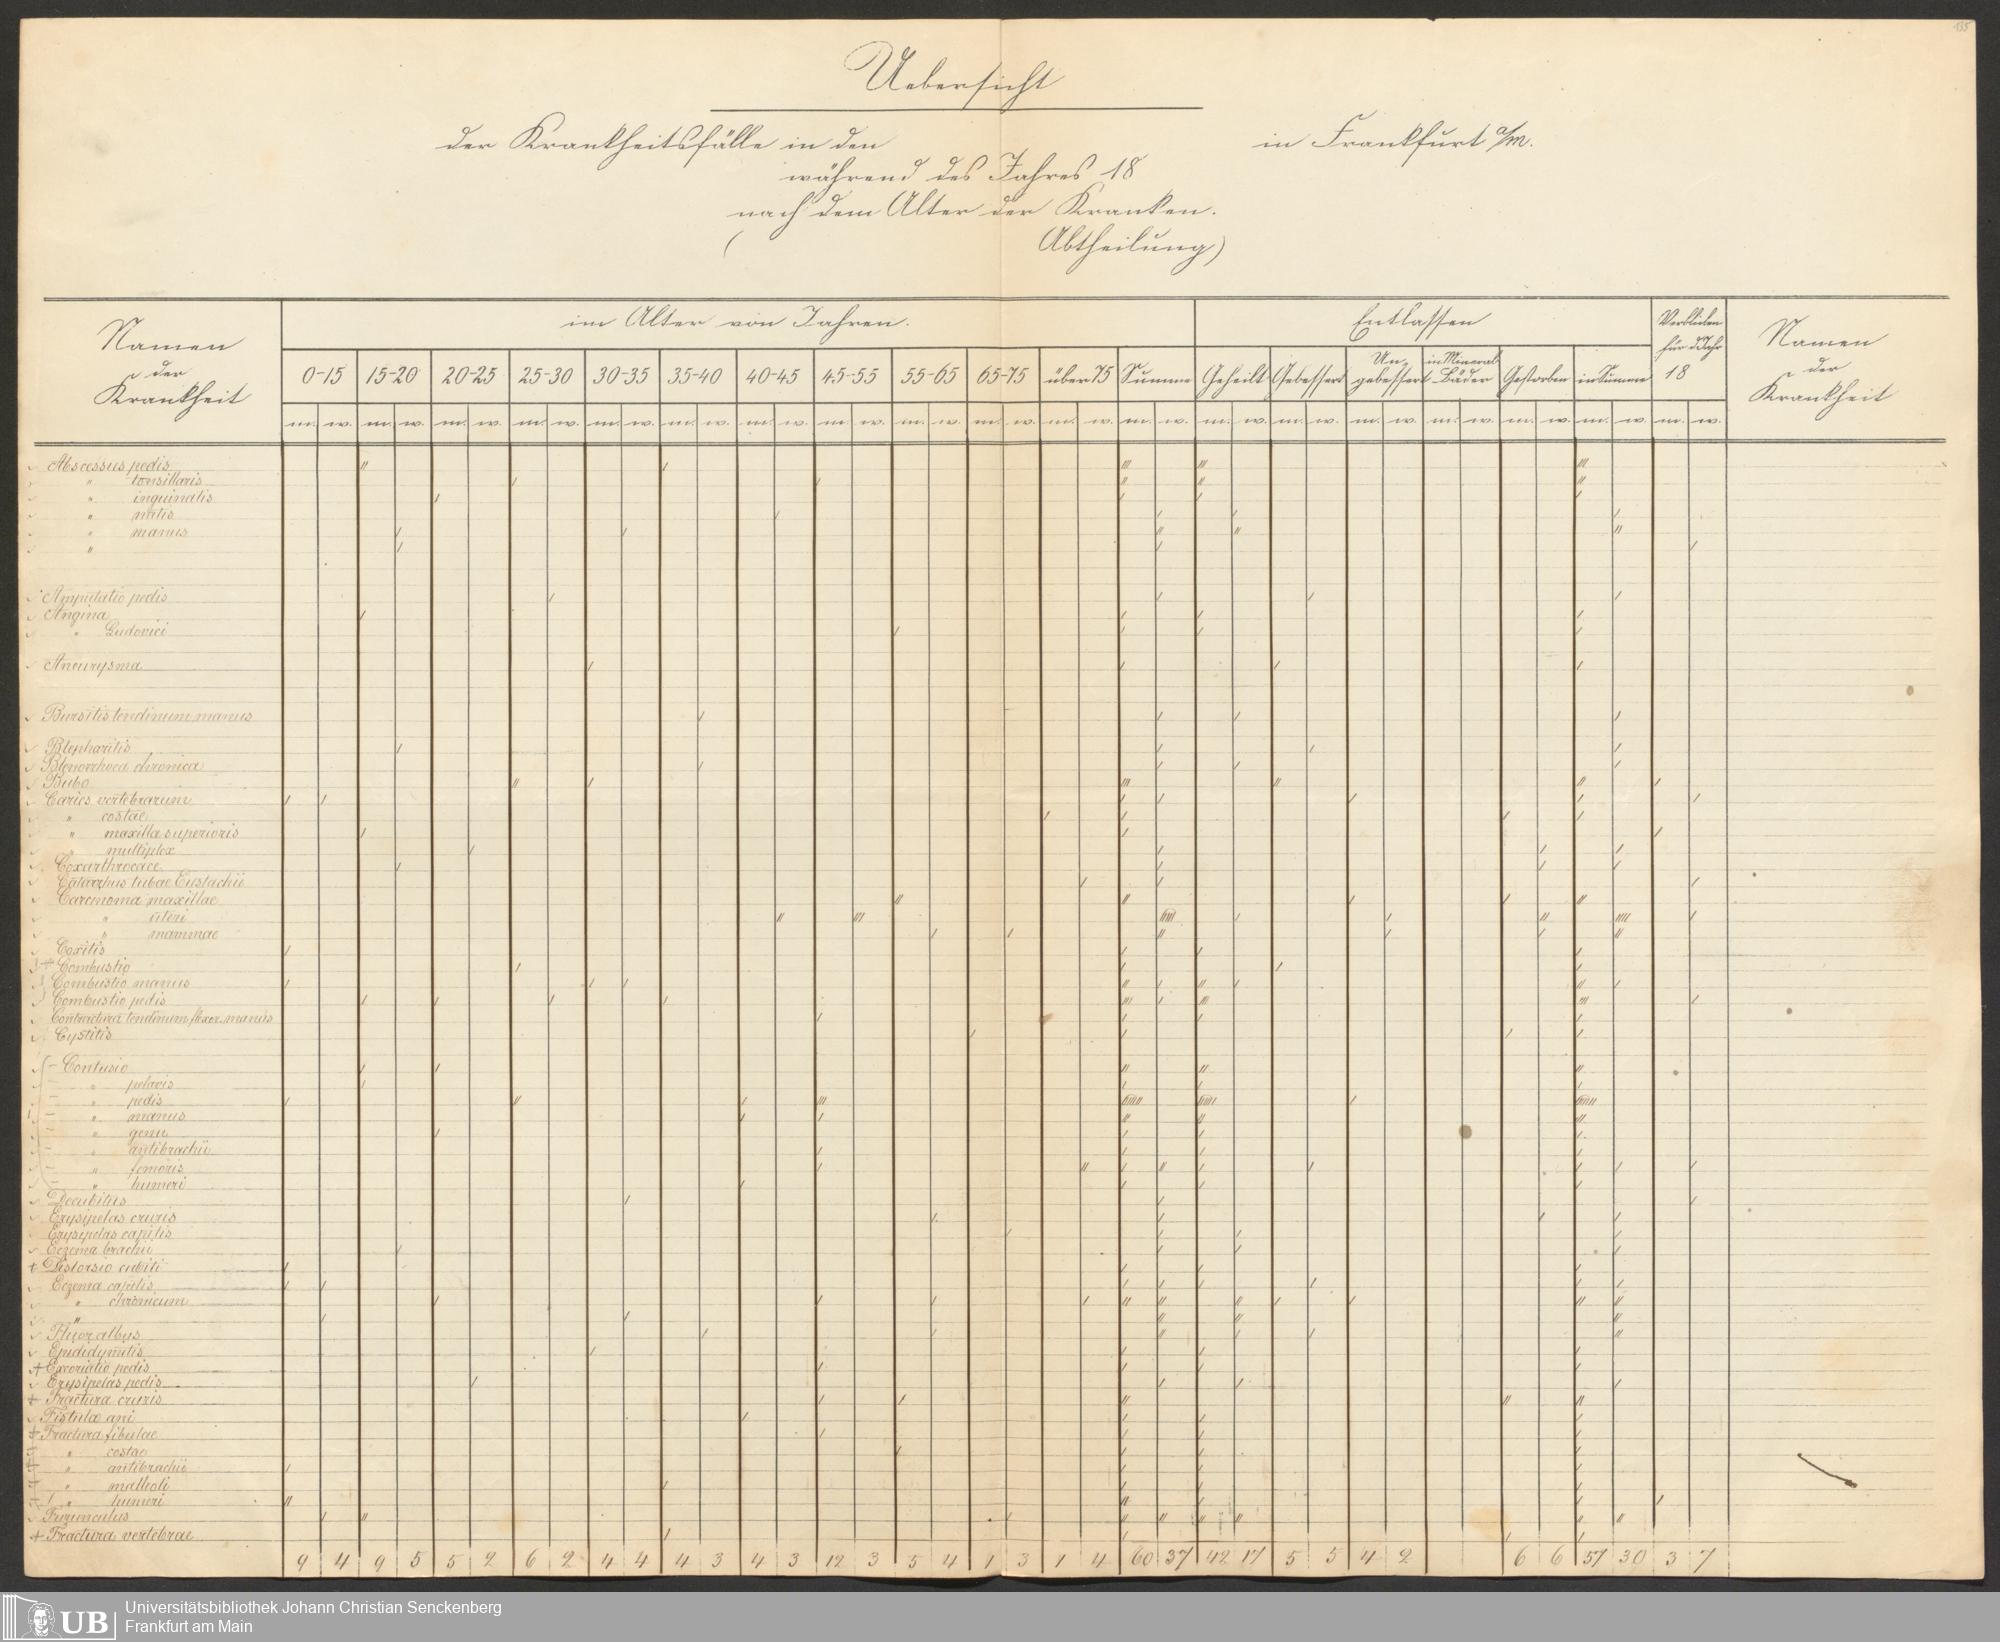 135
Uebersicht
der Krankheitsfälle in den in Frankfurt a/M.
während des Jahres 18
nach dem Alter der Kranken.
( Abtheilung)
Namen der Krankheit
im Alter von Jahren.
Entlassen
Verblieben für d. Jahr 18
Namen der Krankheit
0-15 15-20 20-25 25-30 30-35 35-40 40-45 45-55 55-65 65-75 über 75 Summe Geheilt Gebessert Ungebessert in Mineral Bäder Gestorben in Summe
m. w. m. w. m. w. m. w. m. w. m. w. m. w. m. w. m. w. m. w. m. w. m. w. m. w. m. w. m. w. m. w. m. w. m. w. m. w.
Abscessus pedis
" tonsillaris
" inguinalis
" natis
" manus
"
Amputatio pedis
Angina
" Ludovici
Aneurysma
Bursitis tendinum manus
Blepharitis
Blenorrhoea chronica
Bubo
Caries vertebrarum
" costae
" maxilla superioris
" multiplex
Coxarthrocace
Catarrhus tubae Eustachii
Carcinoma maxillae
" uteri
" mammae
Coxitis
Combustio
Combustio manus
Combustio pedis
Contractura tendinum flexor. manus
Cystitis
Contusio
" pelvis
" pedis
" manus
" genu
" antibrachii
" femoris
" humeri
Decubitus
Erysipelas cruris
Erysipelas capitis
Eczema brachii
Distorsio cubiti
Eczema capitis
" chronicum
"
Fluor albus
Epididymitis
Excoriatio pedis
Erysipelas pedis
Fractura cruris
Fistula ani
Fractura fibulae
" costae
" antibrachii
" malleoli
" humeri
Furunculus
Fractura vertebrae
9 4 9 5 5 2 6 2 4 4 4 3 4 3 12 3 5 4 1 3 1 4 60 37 42 17 5 5 4 2 6 6 57 30 3 7
UB
Universitätsbibliothek Johann Christian Senckenberg
Frankfurt am Main